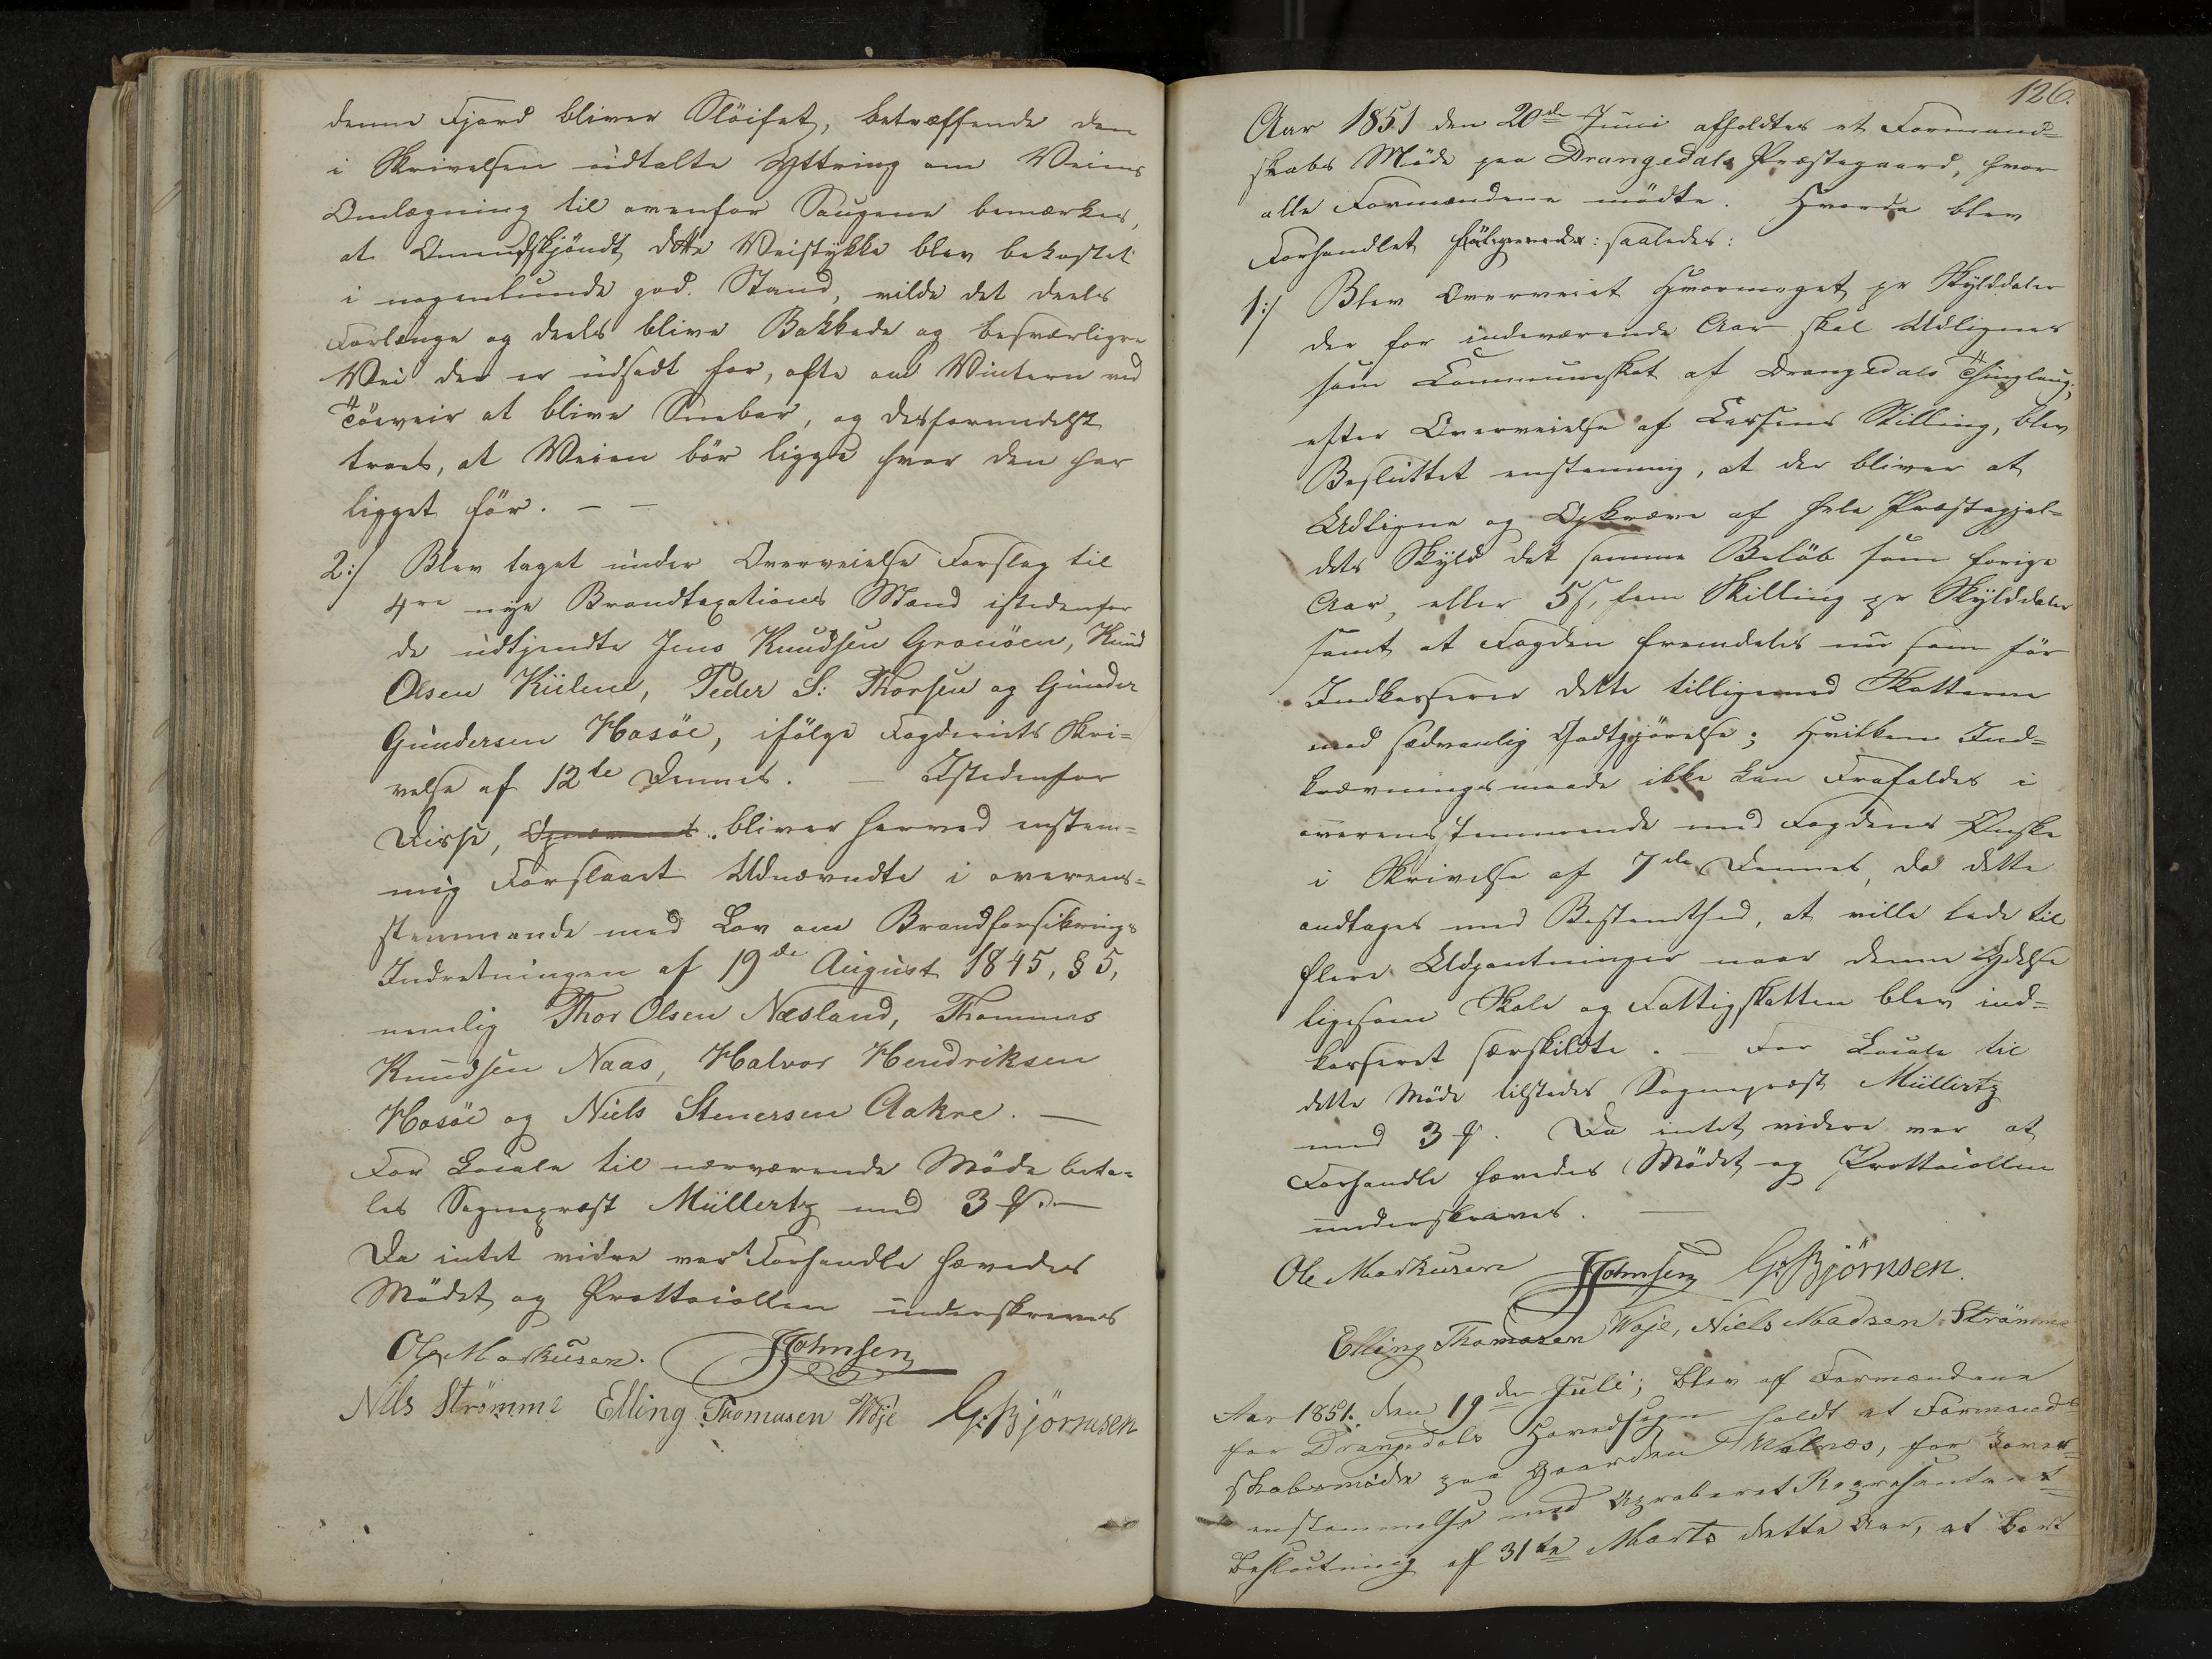 denne Fjord bliver Slöifet, betræffende den
i Skrivelsen udtalte Yttring om Veiens
Omlægning til ovenfor Saugene bemærkes,
at Omendskjöndt dette Veistykke blev bekostet
i nogenlunde god Stand, vilde det deels
Forlænge og deels blive Bakkede og besværligre
Vei der er udsadt for, ofte om Vintern ved
Töeveir at blive Snebar, og desformedelst
troes, at Veien bör ligge hvor den har
ligget för. — —
2:/ Blev taget under Overveielse Forslag til
4re nye Brandtaxations Mænd istedenfor
de udtjendte Jens Knudsen Gronöen, Knud
Olsen Kiilene, Peder S: Thorsen og Gunder
Gundersen Hosöe, ifölge Fogderiets Skri=
velse af 12te Dennes. — Istedenfor
Disse, bliver herved enstem=
mig Forslaaet Udnævndte i overens=
stemmende med Lov om Brandforsikrings
Indretningen af 19de August 1845, § 5,
nemlig Thor Olsen Næsland, Thommes
Knudsen Naas, Halvor Hendriksen
Hosöe og Niels Stenersen Aakre. —
For Locale til nærværende Möde beta=
les Sognepræst Müllertz med 3 ß. —
Da intet vidre var at Forhandle hævedes
Mödet og Prottocollen underskreves
Ole Markusen. JJohnsen
Nils Strömme Elling Thomasen Woje G. Björnsen
126.
Aar 1851 den 20de Juni afholdtes et Formand=
skabs Möde paa Drangedals Præstegaard, hvor
alle Formændene mödte. Hvorda blev
Forhandlet fölgende: saaledes:
1:/ Blev Overveiet Hvormeget pr Skylddaler
der for indeværende Aar skal Udlignes
som Communeskat af Drangedals Thinglaug;
efter Overveielse af Cassens Stilling, blev
Besluttet enstemmig, at der bliver at
Udligne og Opkræve af hele Præstegjel=
dets Skyld det samme Belöb som forige
Aar, eller 5 ß, fem Skilling pr Skylddaler
samt at Fogden fremdeles nu som för
Indkasserer dette tilligemed Skatterne
mod sædvanlig Godtgjörelse; Hvilken Ind=
krævningsmaade ikke kan Frafaldes i
overensstemmende med Fogdens Önske
i Skrivelse af 7de Dennes, da dette
andtages med Bestemthed, at ville lede til
flere Udpantninger naar denne Ydelse
ligesom Skole og Fattigskatten blev ind=
kasseret særskildte. — For Locale til
dette Möde tilstedes Sognepræst Müllertz
med 3 ß. Da intet videre var at
Forhandle hævedes Mödet og Prottocollen
underskreves. —
Ole Markusen JJohnsen G. Björnsen.
Elling Thomasen Woje, Niels Madsen Strömme
Aar 1851. den 19de Juli; blev af Formændene
for Drangedals Hovedsogn holdt et Formand=
skabsmöde paa Gaarden Walnæs, for Over=
enstemmelse med Aproberet Repræsentant=
beslutning af 31te Marts dette Aar, at bort